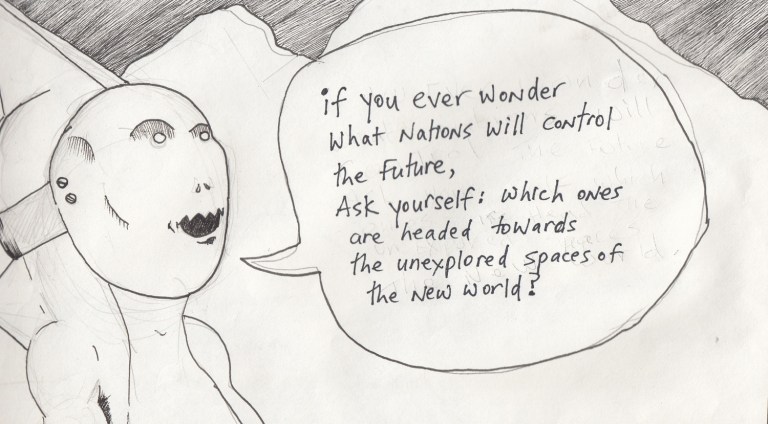 if you ever wonder
what Nations will control
the future,
Ask yourself: which ones
are headed towards
the unexplored spaces of
the New world?